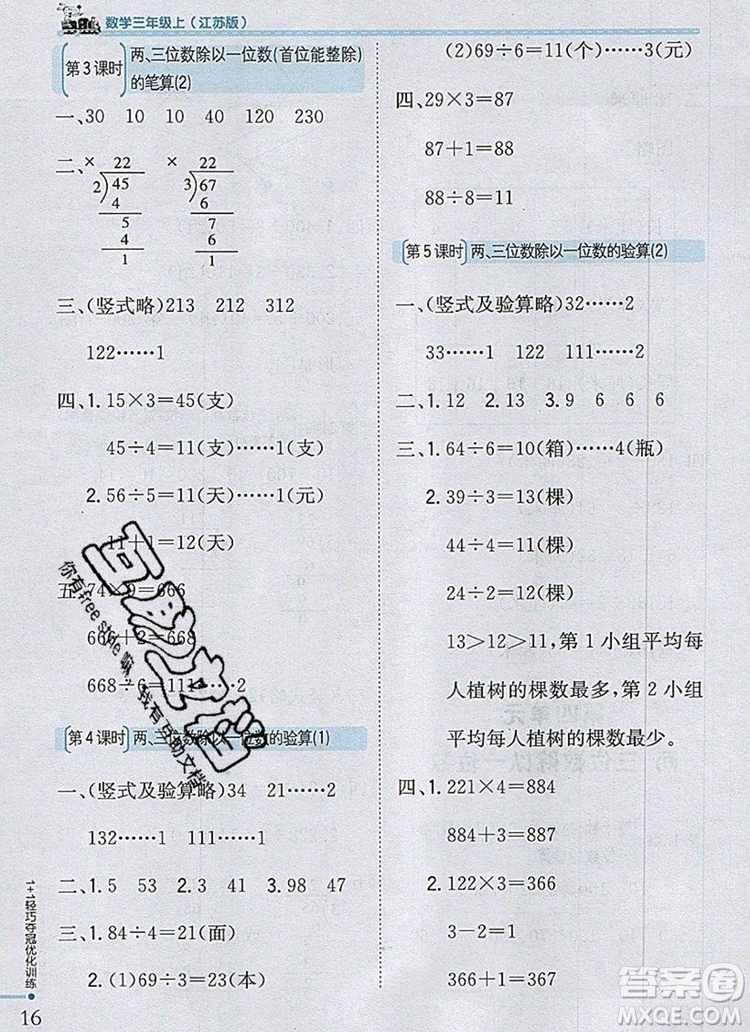 数学三年级上(江苏版)
第3课时 两、三位数除以一位数(首位能整除)
的笔算(2)
一、30 10 10 40 120 230
二、× 22 × 22
2 45 3 67
4 6
5 7
4 6
1 1
三、(竖式略)213 212 312
122……1
四、1.15×3=45(支)
45÷4=11(支)……1(支)
2.56÷5=11(天)……1(元)
11+1=12(天)
五、74×9=666
666+2=668
668÷6=111……2
第4课时 两、三位数除以一位数的验算(1)
一、(竖式及验算略)34 21……2
132……1 111……1
二、1.5 53 2.3 41 3.98 47
三、1.84÷4=21(面)
2.(1)69÷3=23(本)
(2)69÷6=11……3(元)
四、29×3=87
87+1=88
88÷8=11
第5课时 两、三位数除以一位数的验算(2)
一、(竖式及验算略)32……2
33……1 122 111……2
二、1.12 2.10 3.9 6 6 6
三、1.64÷6=10(箱)……4(瓶)
2.39÷3=13(棵)
44÷4=11(棵)
24÷2=12(棵)
13>12>11,第1小组平均每
人植树的棵数最多,第2小组
平均每人植树的棵数最少。
四、1.221×4=884
884+3=887
2.122×3=366
3-2=1
366+1=367
1+1轻巧夺冠优化训练
16
你有free style嘛,我有互助文档
答案圈
MXQE.COM